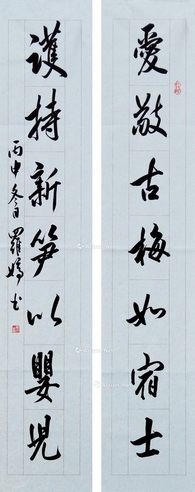 愛敬古梅如宿士
護持新笋以嬰児
丙申冬日羅嬌书